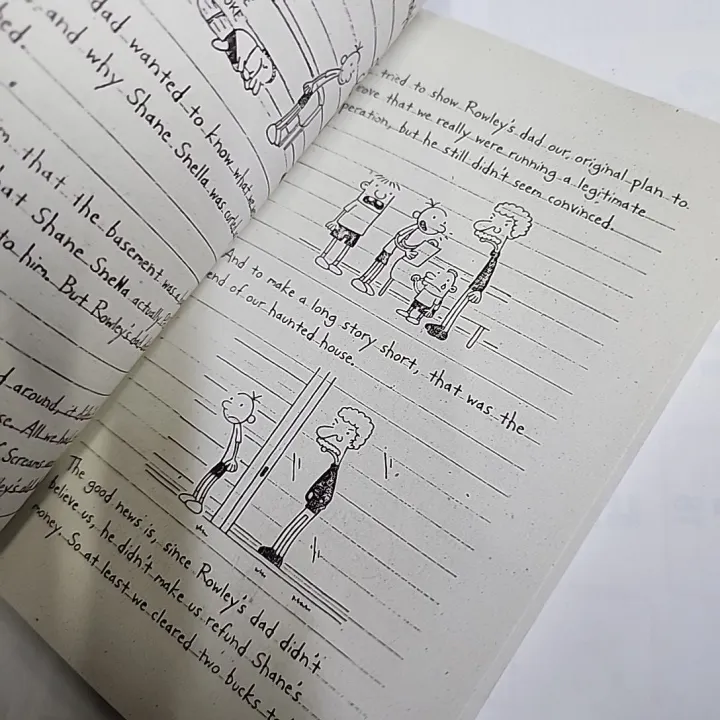 OKE
dad wanted to know what
and why Shane Snella was
that the basement was
Shane Snella actually
to him. But Rowley's
around,
All we
Screams
I tried to show Rowley's dad our original plan to
prove that we really were running a legitimate
operation, but he still didn't seem convinced.
And to make a long story short, that was the
end of our haunted house.
The good news is, since Rowley's dad didn't
believe us, he didn't make us refund Shane's
money. So at least we cleared two bucks